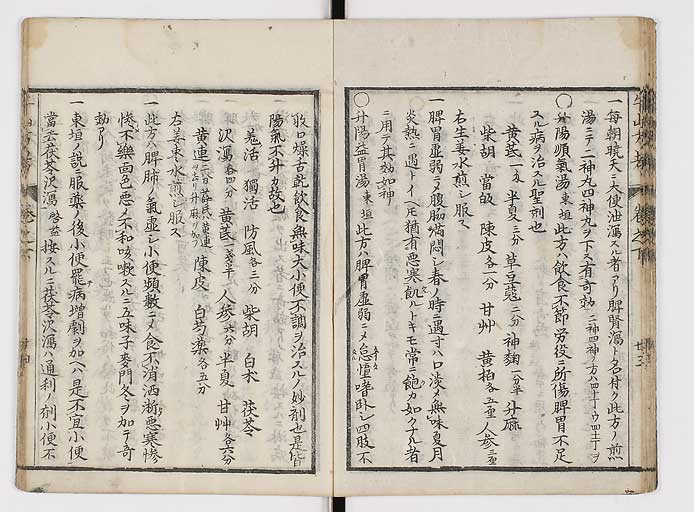 一每朝曉天ニ大便泄瀉スル者アリ脾腎瀉ト名付ク此方ノ煎
湯ニテ二神丸四神丸ヲ下ス有奇効
○升陽順氣湯東垣此方ハ飲食不節労役ニ所傷脾胃不足
スル病ヲ治スル聖剤也
黄芪一匁 半夏三分 草豆蔲二分 神麹 升麻
柴胡 當皈 陳皮各一分 甘艸 黄栢 人参
右生姜水煎シ服ス
一脾胃虚弱ニメ腹脇満悶シ春ノ時ニ遇寸ハ口淡メ無味夏月
炎熱ニ遇トイヘモ猶有悪寒飢ルトキモ常ニ飽カ如クナル者
ニ用テ其効如神
○升陽益胃湯東垣此方ハ脾胃虚弱ニメ怠惰嗜卧シ四肢不
收口燥舌乾飲食無味大小便不調ヲ治スルノ妙剤也是皆
陽氣不升カ故也
羌活 獨活 防風各三分 柴胡 白朮 茯苓
沢瀉各四分 黄芪 人参六分 半夏 甘艸各六分
黄連 陳皮 白芍藥各五分
右姜枣水煎シ服ス
一此方ハ脾肺ノ氣虚シ小便頻數ニメ食不消洒淅悪寒惨
惨不樂面色悪メ不和咳嗽スルニ五味子麥門冬ヲ加テ奇
効アリ
一東垣ノ説ニ服藥ノ後小便罷テ病増劇ヲ加ヘハ是不宜小便
當去茯苓沢瀉 按スルニ茯苓沢瀉ハ通利ノ剤小便不